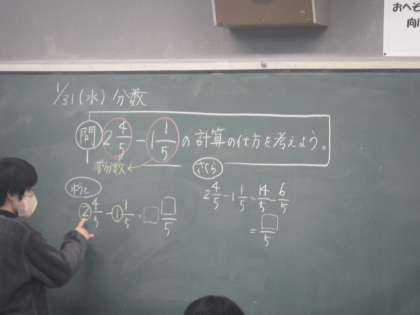 1/31(水)分数
問 2 4/5 - 1 1/5 の計算の仕方を考えよう。
帯分数
ゆうと
2 4/5 - 1 1/5 = □ □/5
さくら
2 4/5 - 1 1/5 = 14/5 - 6/5
= □/5
おへそ
向け